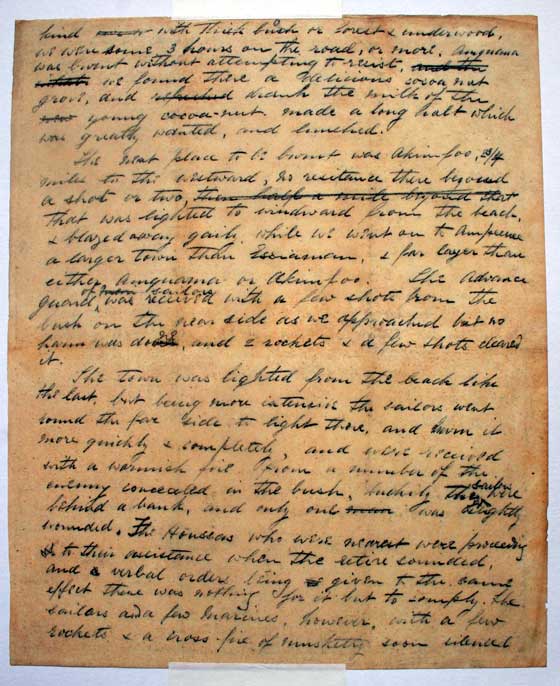 kind with thick bush or forest & underwood,
we were some 3 hours on the road, or more. Amquana
was burnt without attempting to resist, and the
we found there a delicious cocoa nut
grove, and refreshed drank the milk of the
new young cocoa-nut. made a long halt which
was greatly wanted, and lunched.
The next place to be burnt was Akimfoo, 3/4
miles to the westward, no resitance there beyond
a shot or two, then half a mile beyond that
that was lighted to windward from the beach,
& blazed away gaily while we went on to Ampenee
a larger town than Essiaman, & far larger than
either Amquana or Akimfoo. The advance
guard, of more sailors was received with a few shots from the
bush on the near side as we approached but no
harm was done, and 2 rockets & a few shots cleared
it.
The town was lighted from the beach like
the last, but being more extensive the sailors went
round the far side to light there, and burn it
more quickly & completely, and were received
with a warmish fire from a number of the
enemy concealed in the bush, luckily the sailors were
behind a bank, and only one man was slightly
wounded. The Houssas who were nearest were proceeding
to their assistance when the retire sounded,
and a verbal orders being given to the same
effect there was nothing for it but to comply. The
sailors and a few Marines, however, with a few
rockets & a cross-fire of musketry soon silenced